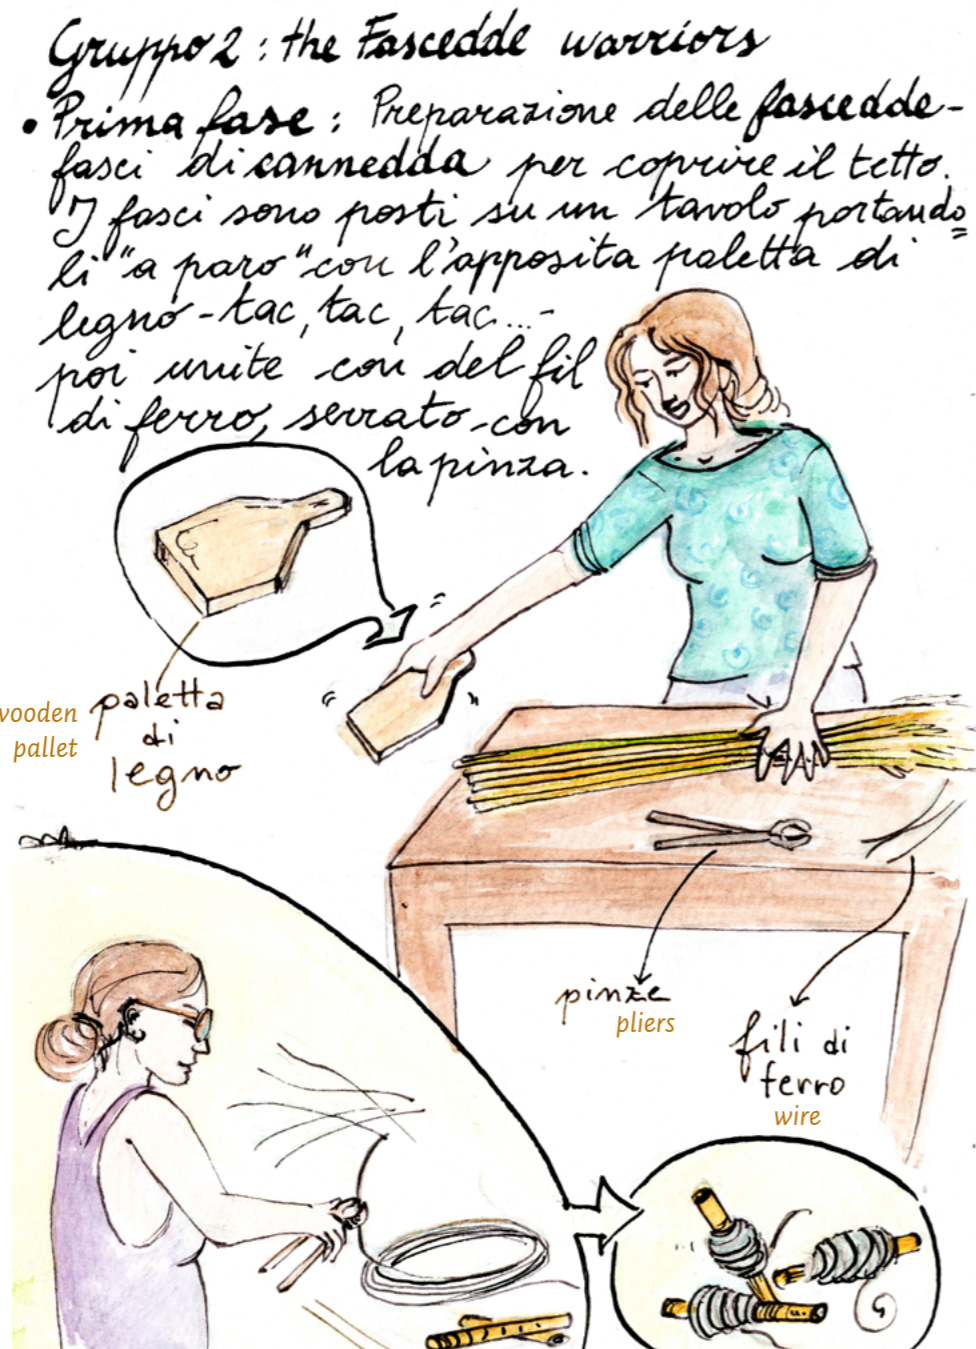 Gruppo 2 : the Fascedde warriors
• Prima fase : Preparazione delle fascedde -
fasci di cannedda per coprire il tetto.
I fasci sono posti su un tavolo portando
li "a paro" con l'apposita paletta di
legno - tac, tac, tac... -
poi unite con del fil
di ferro, serrato con
la pinza.
paletta
di
legno
wooden
pallet
pinze
pliers
fili di
ferro
wire